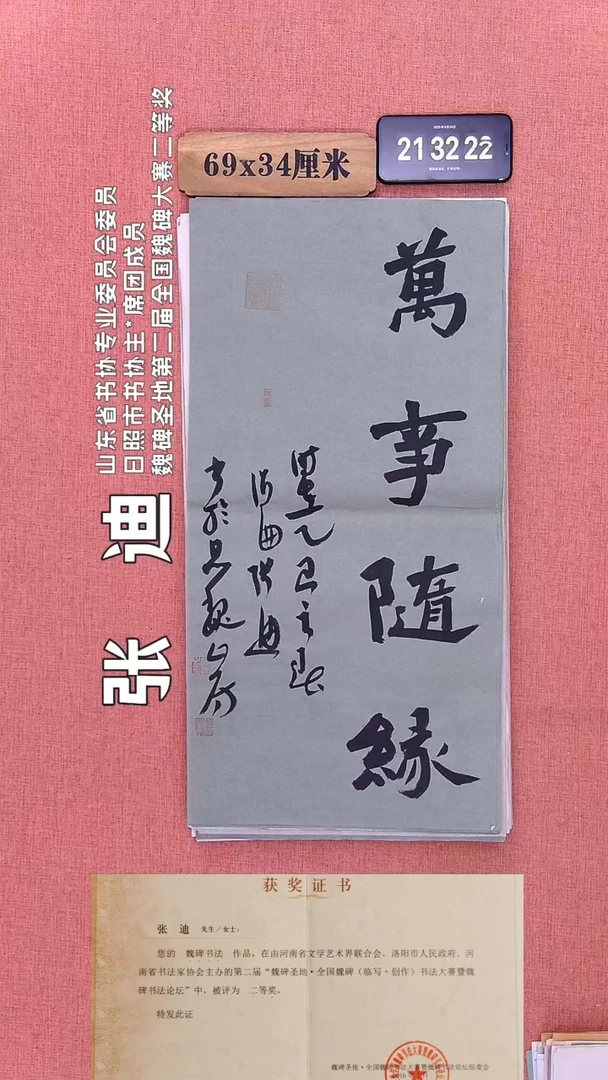 69x34厘米
21 32 22
山东省书协专业委员会委员
日照市书协主*席团成员
魏碑圣地第二届全国魏碑大赛二等奖
张 迪
萬事隨緣
时在乙巳之春
海曲张迪
书於思魏山房
获奖证书
张 迪 先生/女士:
您的 魏碑书法 作品,在由河南省文学艺术界联合会、洛阳市人民政府、河
南省书法家协会主办的第二届“魏碑圣地·全国魏碑(临写+创作)书法大赛暨魏
碑书法论坛”中,被评为 二等奖。
特发此证
魏碑圣地·全国魏碑书法大赛暨魏碑书法论坛组委会